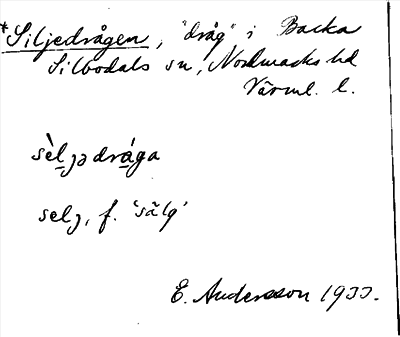 *Siljedrågen, "dråg" i Backa
Silbodals sn, Nordmarks hd
Värml. l.
sèljədrága
selj, f. 'sälg'
E. Andersson 1933.